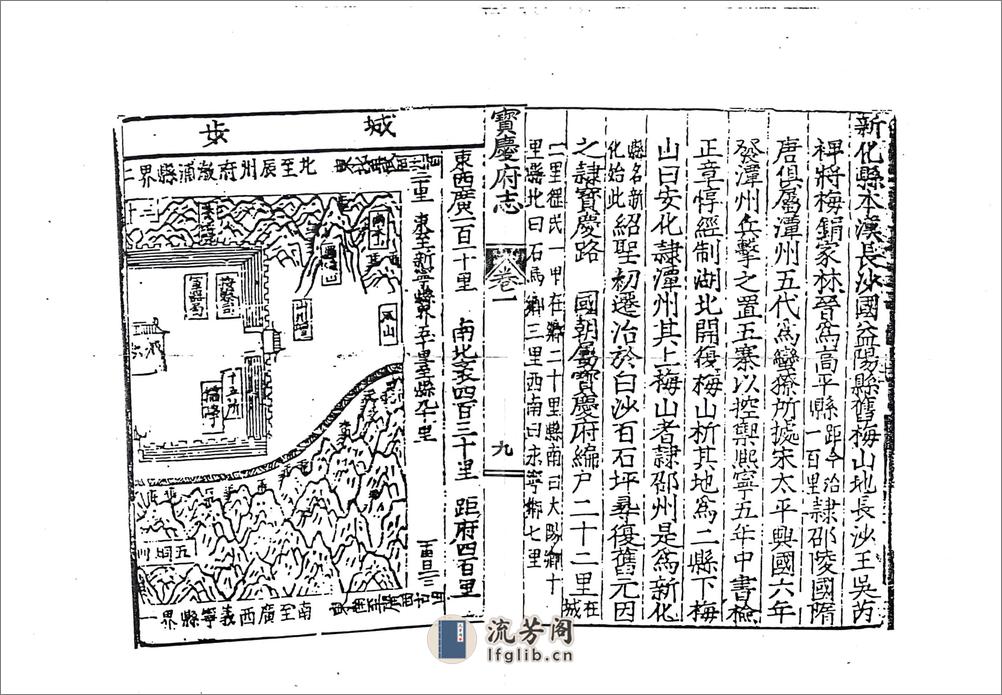 新化縣本漢長沙國益陽縣舊梅山地長沙王吳芮
裨將梅鋗家林晉爲高平縣距今治一百里隸邵陵國隋
唐俱屬潭州五代爲蠻獠所據宋太平興國六年
發潭州兵擊之置五寨以控禦熙寧五年中書檢
正章惇經制湖北開復梅山析其地爲二縣下梅
山曰安化隸潭州其上梅山者隸邵州是爲新化
縣名新化始此紹聖初遷治於白沙石石坪尋復舊元因
之隸寶慶路 國朝屬寶慶府編户二十二里在城
二里經民一甲在鄉二十里縣南曰大陽鄉十
里縣北曰石馬鄉三里西南曰永寧鄉七里
寶慶府志
卷一
九
東西廣一百一十里 南北袤四百三十里 距府四百里
東至新寧縣界
城步
北至辰州府溆浦縣界二
風山
按察司
十五所
五峒
南至廣西義寧縣界一
流芳阁
lfglib.cn